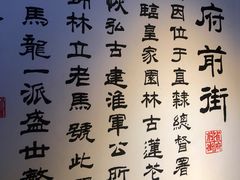 府前街
因位于直隸總督署
臨皇家園林古蓮花
恢弘古建淮軍公所
林立老馬號此
馬龍一派盛世繁